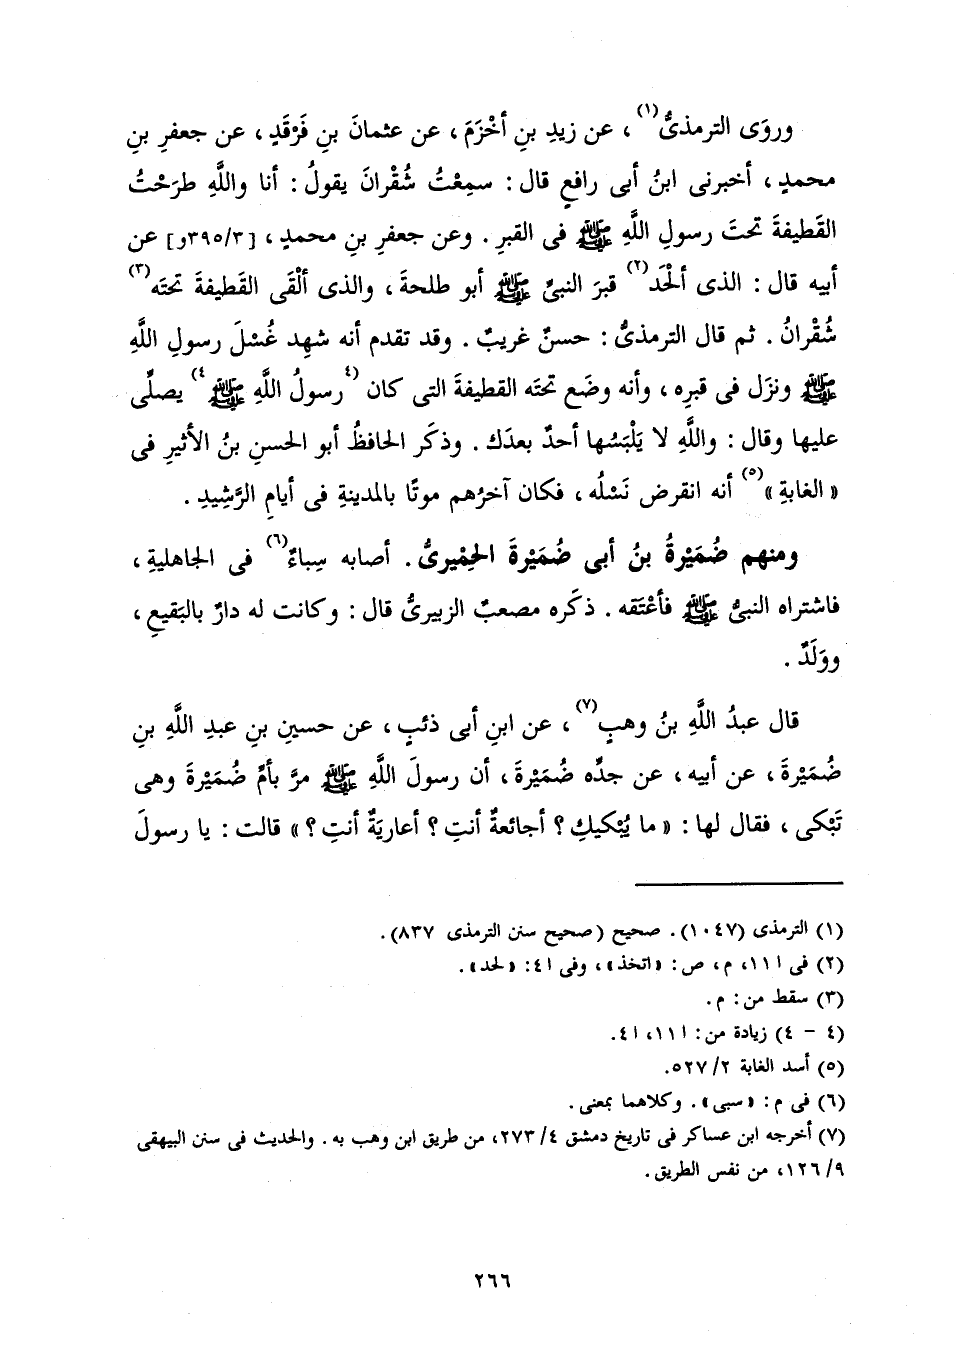 وروَى الترمذىُّ(١)، عن زيدِ بنِ أخْزَمَ، عن عثمانَ بنِ فَرْقَدٍ، عن جعفرِ بنِ
محمدٍ، أخبرنى ابنُ أبى رافعٍ قال: سمِعْتُ شُقْرانَ يقولُ: أنا واللَّهِ طرَحْتُ
القَطيفةَ تحتَ رسولِ اللَّهِ ﷺ فى القبرِ. وعن جعفرِ بنِ محمدٍ، [٣٩٥/٣و] عن
أبيه قال: الذى ألْحَد(٢) قبرَ النبىِّ ﷺ أبو طلحةَ، والذى ألْقَى القَطيفةَ تحتَه(٣)
شُقْرانُ. ثم قال الترمذىُّ: حسنٌ غريبٌ. وقد تقدم أنه شهِد غُسْلَ رسولِ اللَّهِ
ﷺ ونزَل فى قبرِه، وأنه وضَع تحتَه القطيفةَ التى كان (٤رسولُ اللَّهِ ﷺ٤) يصلِّى
عليها وقال: واللَّهِ لا يَلْبَسُها أحدٌ بعدَك. وذكَر الحافظُ أبو الحسنِ بنُ الأثيرِ فى
«الغابةِ»(٥) أنه انقرض نَسْلُه، فكان آخرُهم موتًا بالمدينةِ فى أيامِ الرَّشِيدِ.
ومنهم ضُمَيْرةُ بنُ أبى ضُمَيْرةَ الحِمْيرىُّ. أصابه سِباءٌ(٦) فى الجاهليةِ،
فاشتراه النبىُّ ﷺ فأعْتَقه. ذكَره مصعبٌ الزبيرىُّ قال: وكانت له دارٌ بالبَقيعِ،
ووَلَدٌ.
قال عبدُ اللَّهِ بنُ وهبٍ(٧)، عن ابنِ أبى ذئبٍ، عن حسينِ بنِ عبدِ اللَّهِ بنِ
ضُمَيْرةَ، عن أبيه، عن جدِّه ضُمَيْرةَ، أن رسولَ اللَّهِ ﷺ مرَّ بأمِّ ضُمَيْرةَ وهى
تَبْكى، فقال لها: «ما يُبْكيكِ؟ أجائعةٌ أنتِ؟ أعاريَةٌ أنتِ؟» قالت: يا رسولَ
(١) الترمذى (١٠٤٧). صحيح (صحيح سنن الترمذى ٨٣٧).
(٢) فى ا ١١، م، ص: «اتخذ»، وفى ا ٤: «لحد».
(٣) سقط من: م.
(٤ - ٤) زيادة من: ا ١١، ا ٤.
(٥) أسد الغابة ٢/ ٥٢٧.
(٦) فى م: «سبى». وكلاهما بمعنى.
(٧) أخرجه ابن عساكر فى تاريخ دمشق ٤/ ٢٧٣، من طريق ابن وهب به. والحديث فى سنن البيهقى
٩/ ١٢٦، من نفس الطريق.
٢٦٦